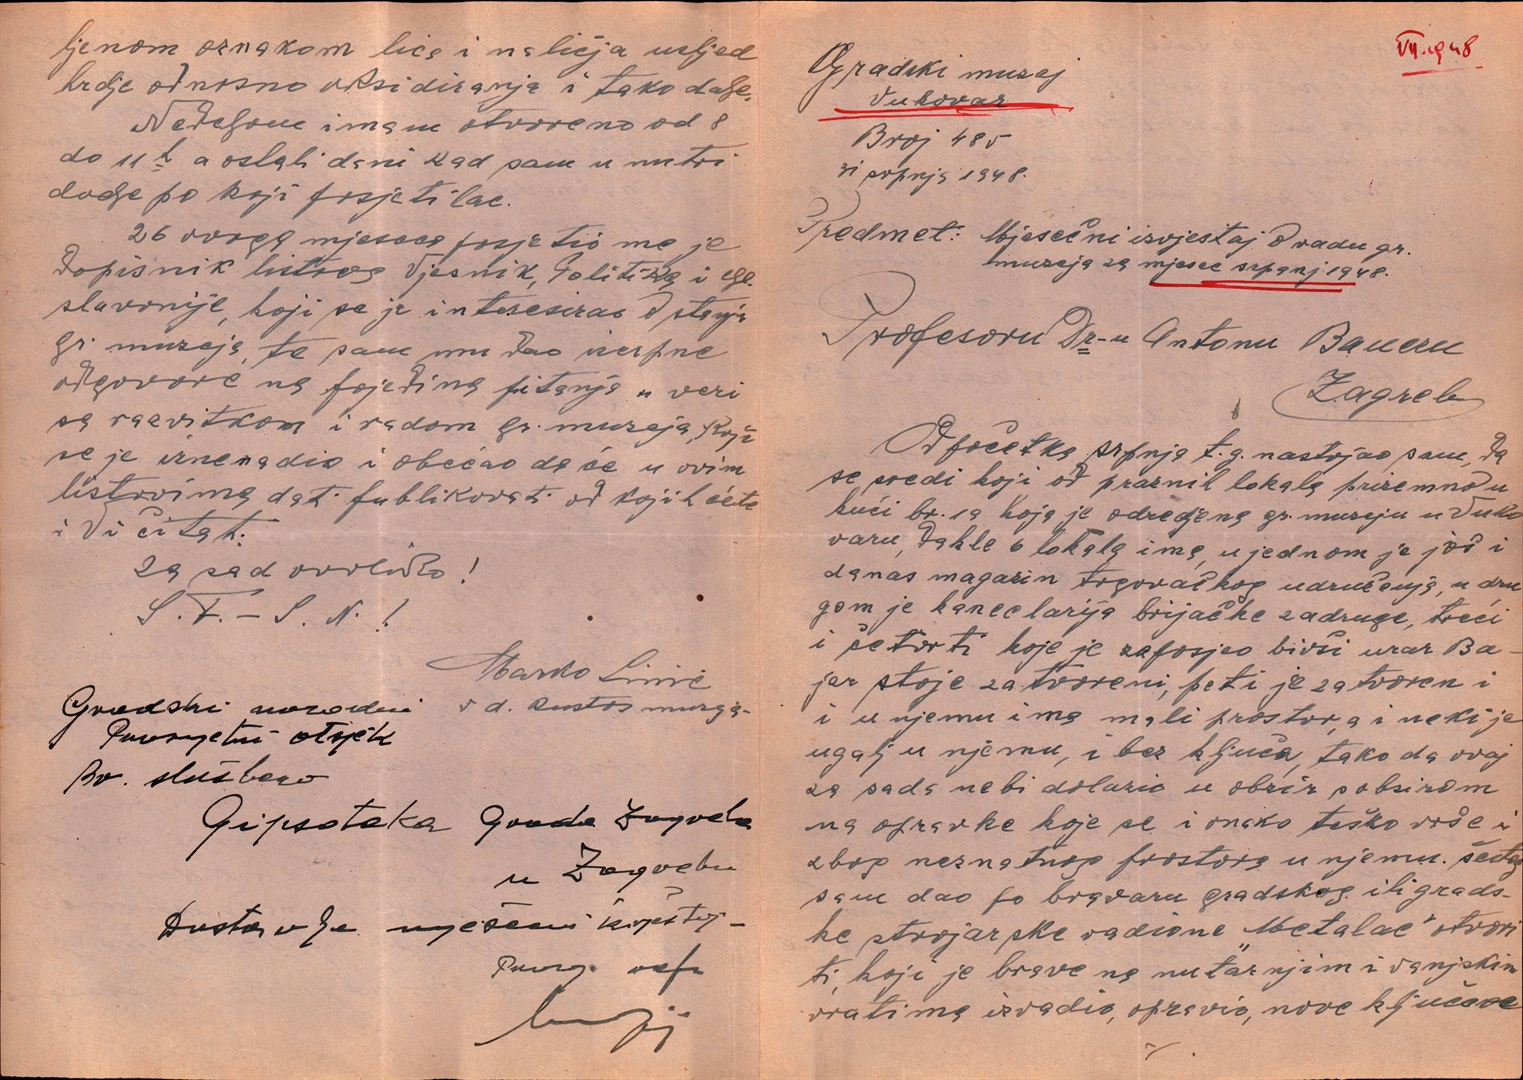 ljenom oznakom lica i naličja usljed
hrdje odnosno oksidiranja i tako dalje.
Nedeljom imam otvoreno od 8
do 11 h a ostali dani kad sam u nutri
dodje po koji posjetilac.
26 ovoga mjeseca posjetio me je
dopisnik listova Vjesnik, Politika i Gl.
slavonije, koji se je interesirao o stanju
gr. muzeja, te sam mu dao iscrpne
odgovore na pojedina pitanja u vezi
sa razvitkom i radom gr. muzeja, koji
se je iznenadio i obećao da će u ovim
listovima dati publikovati od kojih ćete
i Vi čitati.
Za sad ovoliko!
S. F. – S. N.!
Marko Linić
v d. kustos muzeja.
Gradski narodni
Prosvjetni otsjek
Br. službeno
Gipsoteka Grada Zagreba
u Zagrebu
Dostavlja mješeni izvještaj –
Prosv. ref.
VII. 1948
Gradski muzej
Vukovar
Broj 485
31 srpnja 1948.
Predmet: Mjesečni izvještaj o radu gr.
muzeja za mjesec srpanj 1948.
Profesoru Dr-u Antonu Baueru
Zagreb
Od početka srpnja t. g. nastojao sam, da
se sredi koji od praznih lokala prizemno u
kući br. 19 koja je odredjena gr. muzeju u Vuko
varu, dakle 6 lokala ima, u jednom je još i
danas magazin trgovačkog udruženja, u dru
gom je kancelarija brijačke zadruge, treći
i četvrti koje je zaposjeo bivši urar Ba–
jer stoje zatvoreni, peti je zatvoren i
i u njemu ima mali prostor, a i neki je
ugalj u njemu, i bez ključa, tako da ovaj
za sada nebi dolazio u obzir s obzirom
na opravke koje se i onako teško vrše i
zbog neznatnog prostora u njemu. Šestog
sam dao po bravaru gradskog ili grads-
ke strojarske radione "Metalac" otvori
ti, koji je brave na nutarnjim i vanjskim
vratima izvadio, opravio, nove ključeve